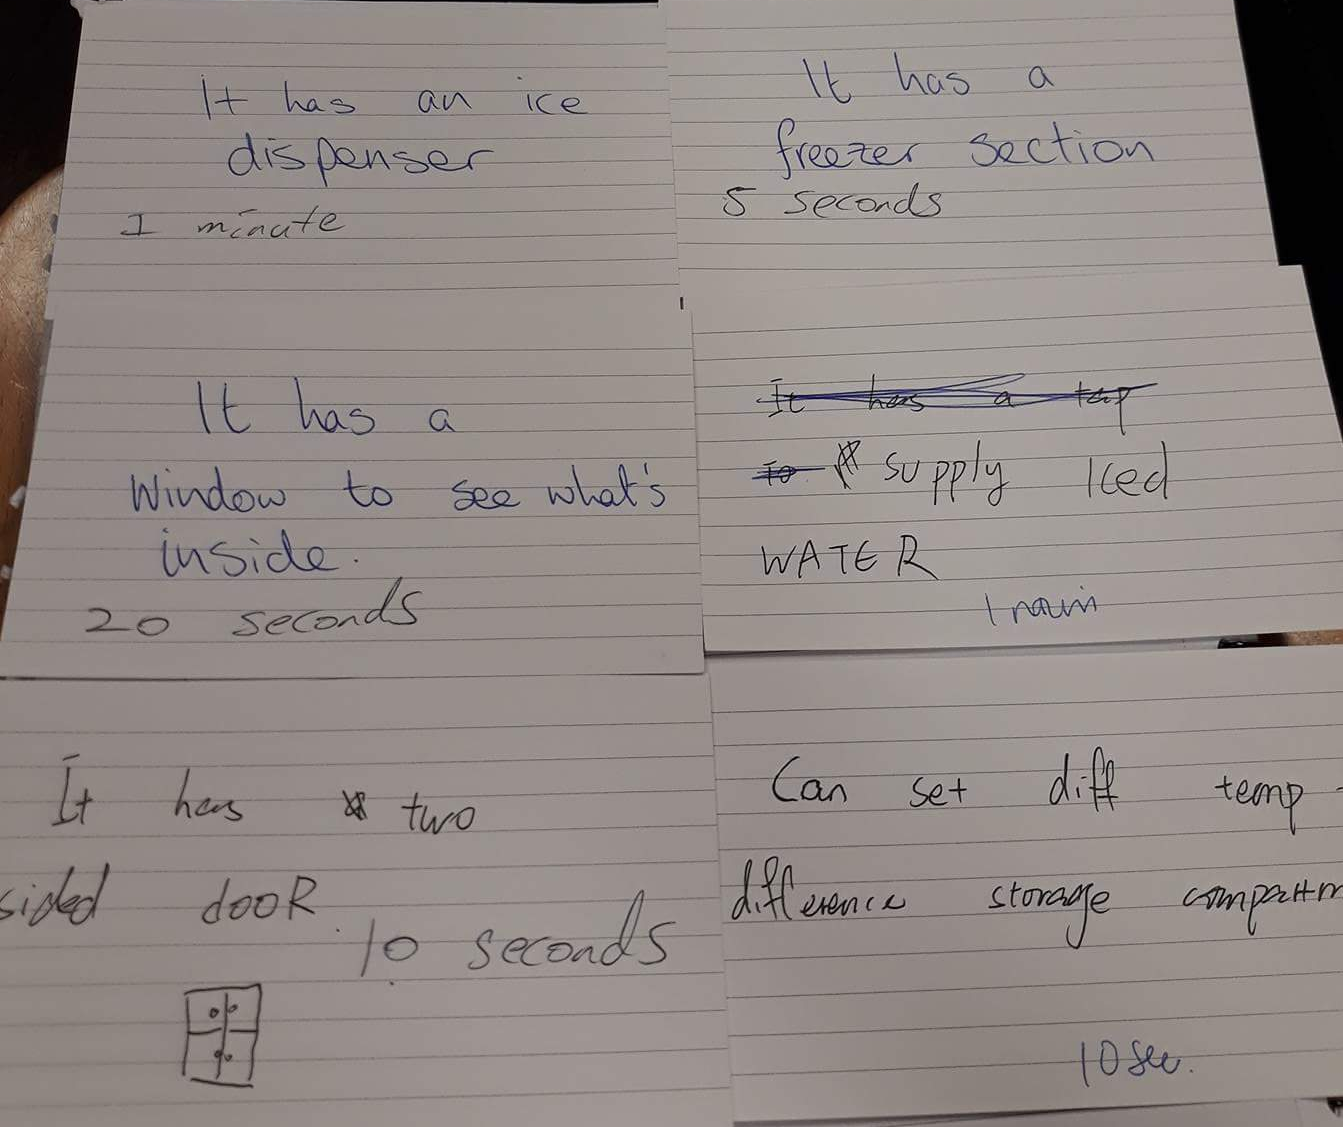 It has an ice
dispenser
1 minute
It has a
freezer section
5 seconds
It has a
window to see what's
inside.
20 seconds
It has a tap
To supply Iced
WATER
1 min
It has two
sided dooR
10 seconds
Can set diff temp
difference storage compartm
10 sec.